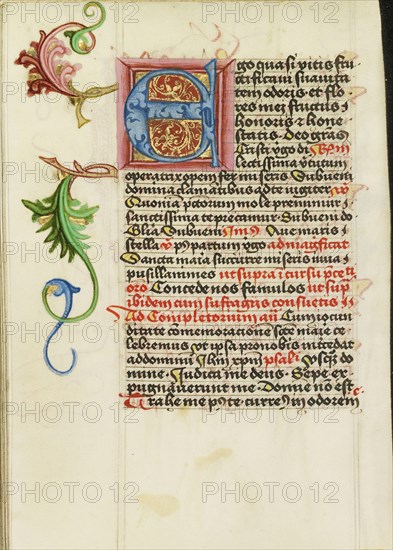 Ego quasi vitis fru
ctificavi suavita
tem odoris et flo
res mei fructus
honoris & hone
statis Deo gras
Christi virgo di
lectissima virtutum
operatrix opem fer miseris Subveni
domina clamantibus ad te iugiter
Quoniam peccatorum mole premimur
sanctissima te precamur Subveni do
Gloria Subveni Ave maris
stella post partum virgo ad magnificat
Sancta maria succurre miseris iuva
pusillanimes ut supra
Concede nos famulos ut sup
ibidem cum suffragiis consuetis
Ad Completorium an Cum iocun
ditate comemoratione scte marie ce
lebremus vt ipsa pro nobis intercedat
ad dominum Ihm xpm psal Usqz do
mine Judica me deus Sepe ex
pugnaverunt me Domine non est
Trahe me post te curremus in odorem
PHOTO 12